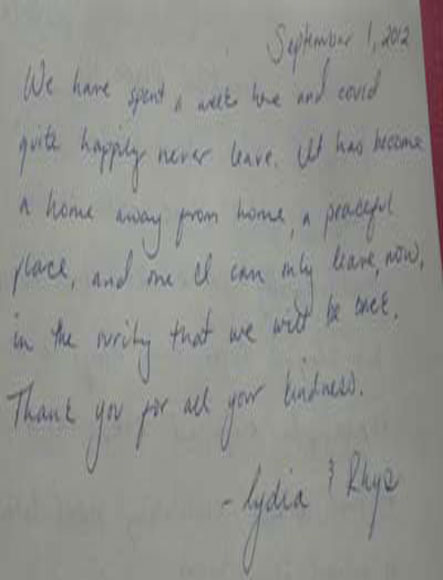 September 1, 2012
We have spent a week here and could
quite happily never leave. It has become
a home away from home, a peaceful
place, and one I can only leave, now,
in the surity that we will be back.
Thank you for all your kindness.
- Lydia & Rhys